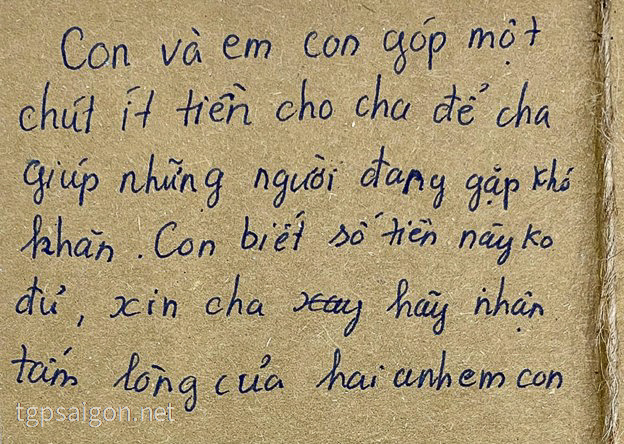 Con và em con góp một
chút ít tiền cho cha để cha
giúp những người đang gặp khó
khăn. Con biết số tiền này ko
đủ, xin cha hãy nhận
tấm lòng của hai anh em con
tgpsaigon.net